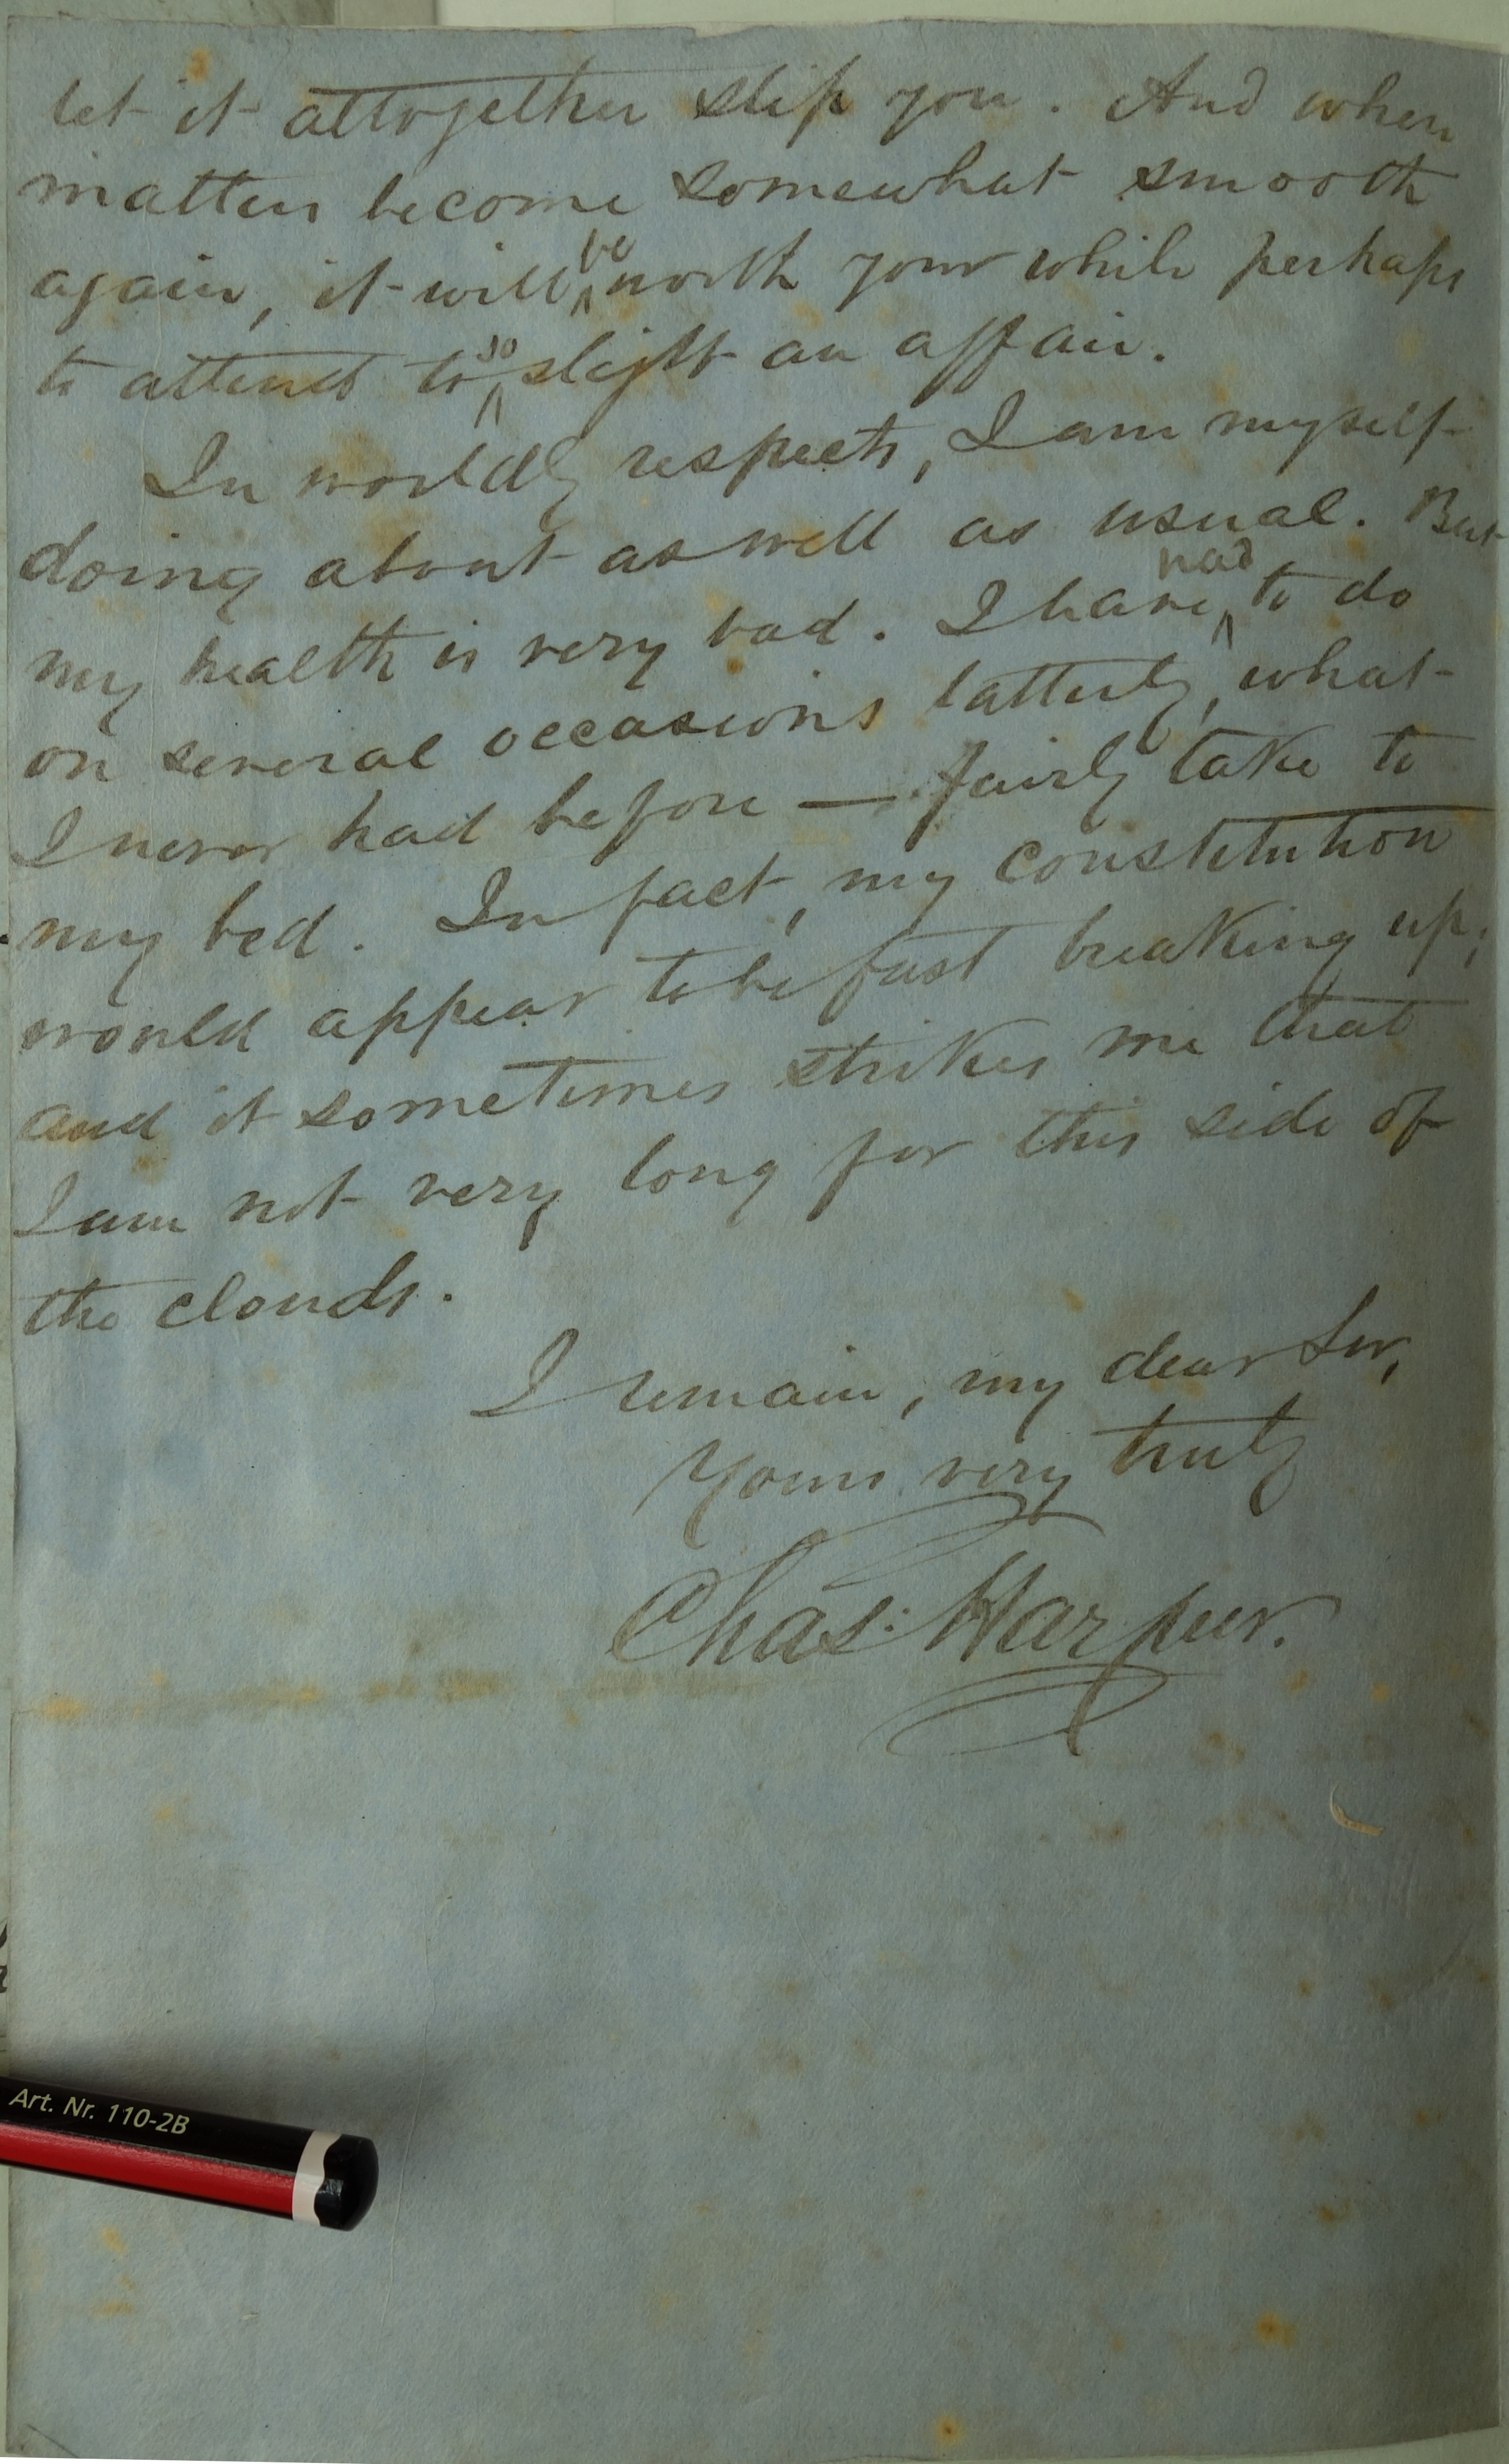 let it altogether slip you. And when
matters become somewhat smooth
again, it will be worth your while perhaps
to attend to so slight an affair.
In worldly respects, I am myself
doing about as well as usual. But
my health is very bad. I have had to do
on several occasions latterly, what
I never had before — fairly take to
my bed. In fact, my constitution
would appear to be fast breaking up;
and it sometimes strikes me that
I am not very long for this side of
the clouds.
I remain, my dear Sir,
Yours very truly
Chas: Harpur.
Art. Nr. 110-2B